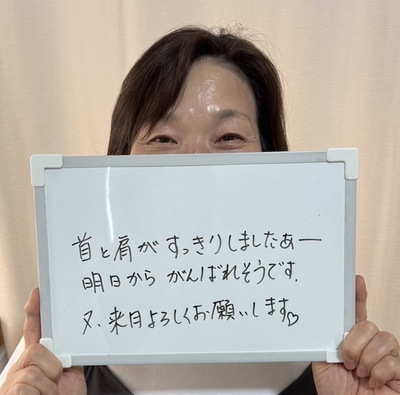 首と肩が すっきりしましたぁー
明日から がんばれそうです.
又、来月よろしくお願いします♡